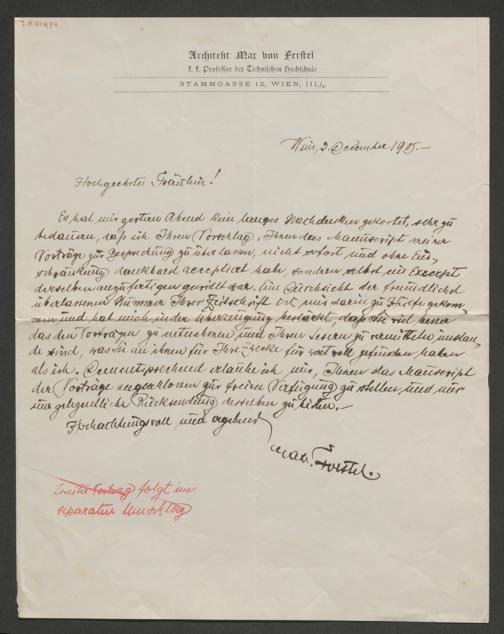 I.N.70934
Architekt Max von Ferstel
k. k. Professor der Technischen Hochschule
STAMMGASSE 12, WIEN, III./₁.
Wien, 3. December 1905.—
Hochgeehrtes Fräulein!
Es hat mir gestern Abend kein langes Nachdenken gekostet, sehr zu
bedauern, daß ich Ihren Vorschlag, Ihnen das Manuscript meiner
Vorträge zur Besprechung zu überlassen, nicht sofort und ohne Ein-
schränkung dankbarst acceptiert habe, sondern selbst ein Excerpt
derselben anzufertigen gewillt war. Die Durchsicht der freundlichst
überlassenen Nummer Ihrer Zeitschrift ist mir darin zu Hilfe gekom-
men und hat mich in der Überzeugung bestärkt, daß Sie viel besser
das den Vorträgen zu entnehmen und Ihren Lesern zu vermitteln imstan-
de sind, was Sie an ihnen für Ihre Zwecke für wertvoll gefunden haben
als ich. Dementsprechend erlaube ich mir, Ihnen das Manuscript
der Vorträge angeschlossen zur freien Verfügung zu stellen und nur
um gelegentliche Rücksendung derselben zu bitten.
Hochachtungsvoll und ergebenst
Max v. Ferstel.
Zweiter Vortrag folgt im
separaten Umschlag